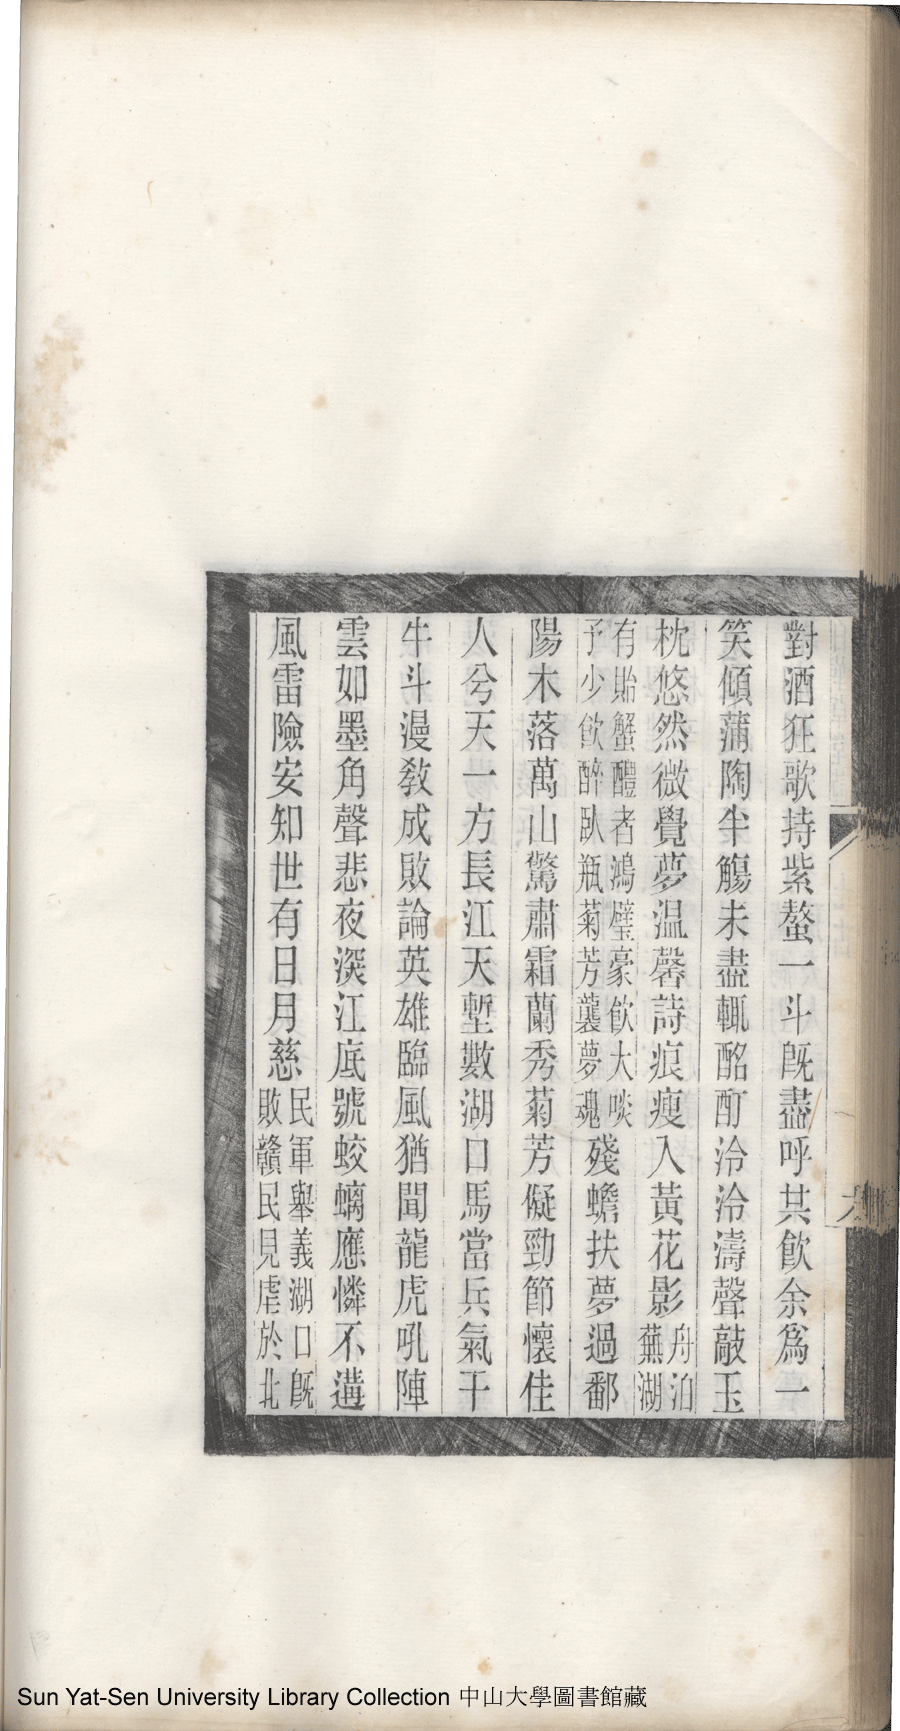 對酒狂歌持紫螯一斗旣盡呼共飮余爲一
笑傾蒲陶半觴未盡輒酩酊泠泠濤聲敲玉
枕悠然微覺夢温馨詩痕瘦入黃花影舟泊蕪湖
有貽蟹醴者鴻璧豪飮大啖予少飮醉臥瓶菊芳襲夢魂殘蟾扶夢過鄱
陽木落萬山驚肅霜蘭秀菊芳儗勁節懷佳
人兮天一方長江天塹數湖口馬當兵氣干
牛斗漫敎成敗論英雄臨風猶聞龍虎吼陣
雲如墨角聲悲夜深江底號蛟螭應憐不遘
風雷險安知世有日月慈民軍舉義湖口旣敗贛民見虐於北
Sun Yat-Sen University Library Collection 中山大學圖書館藏